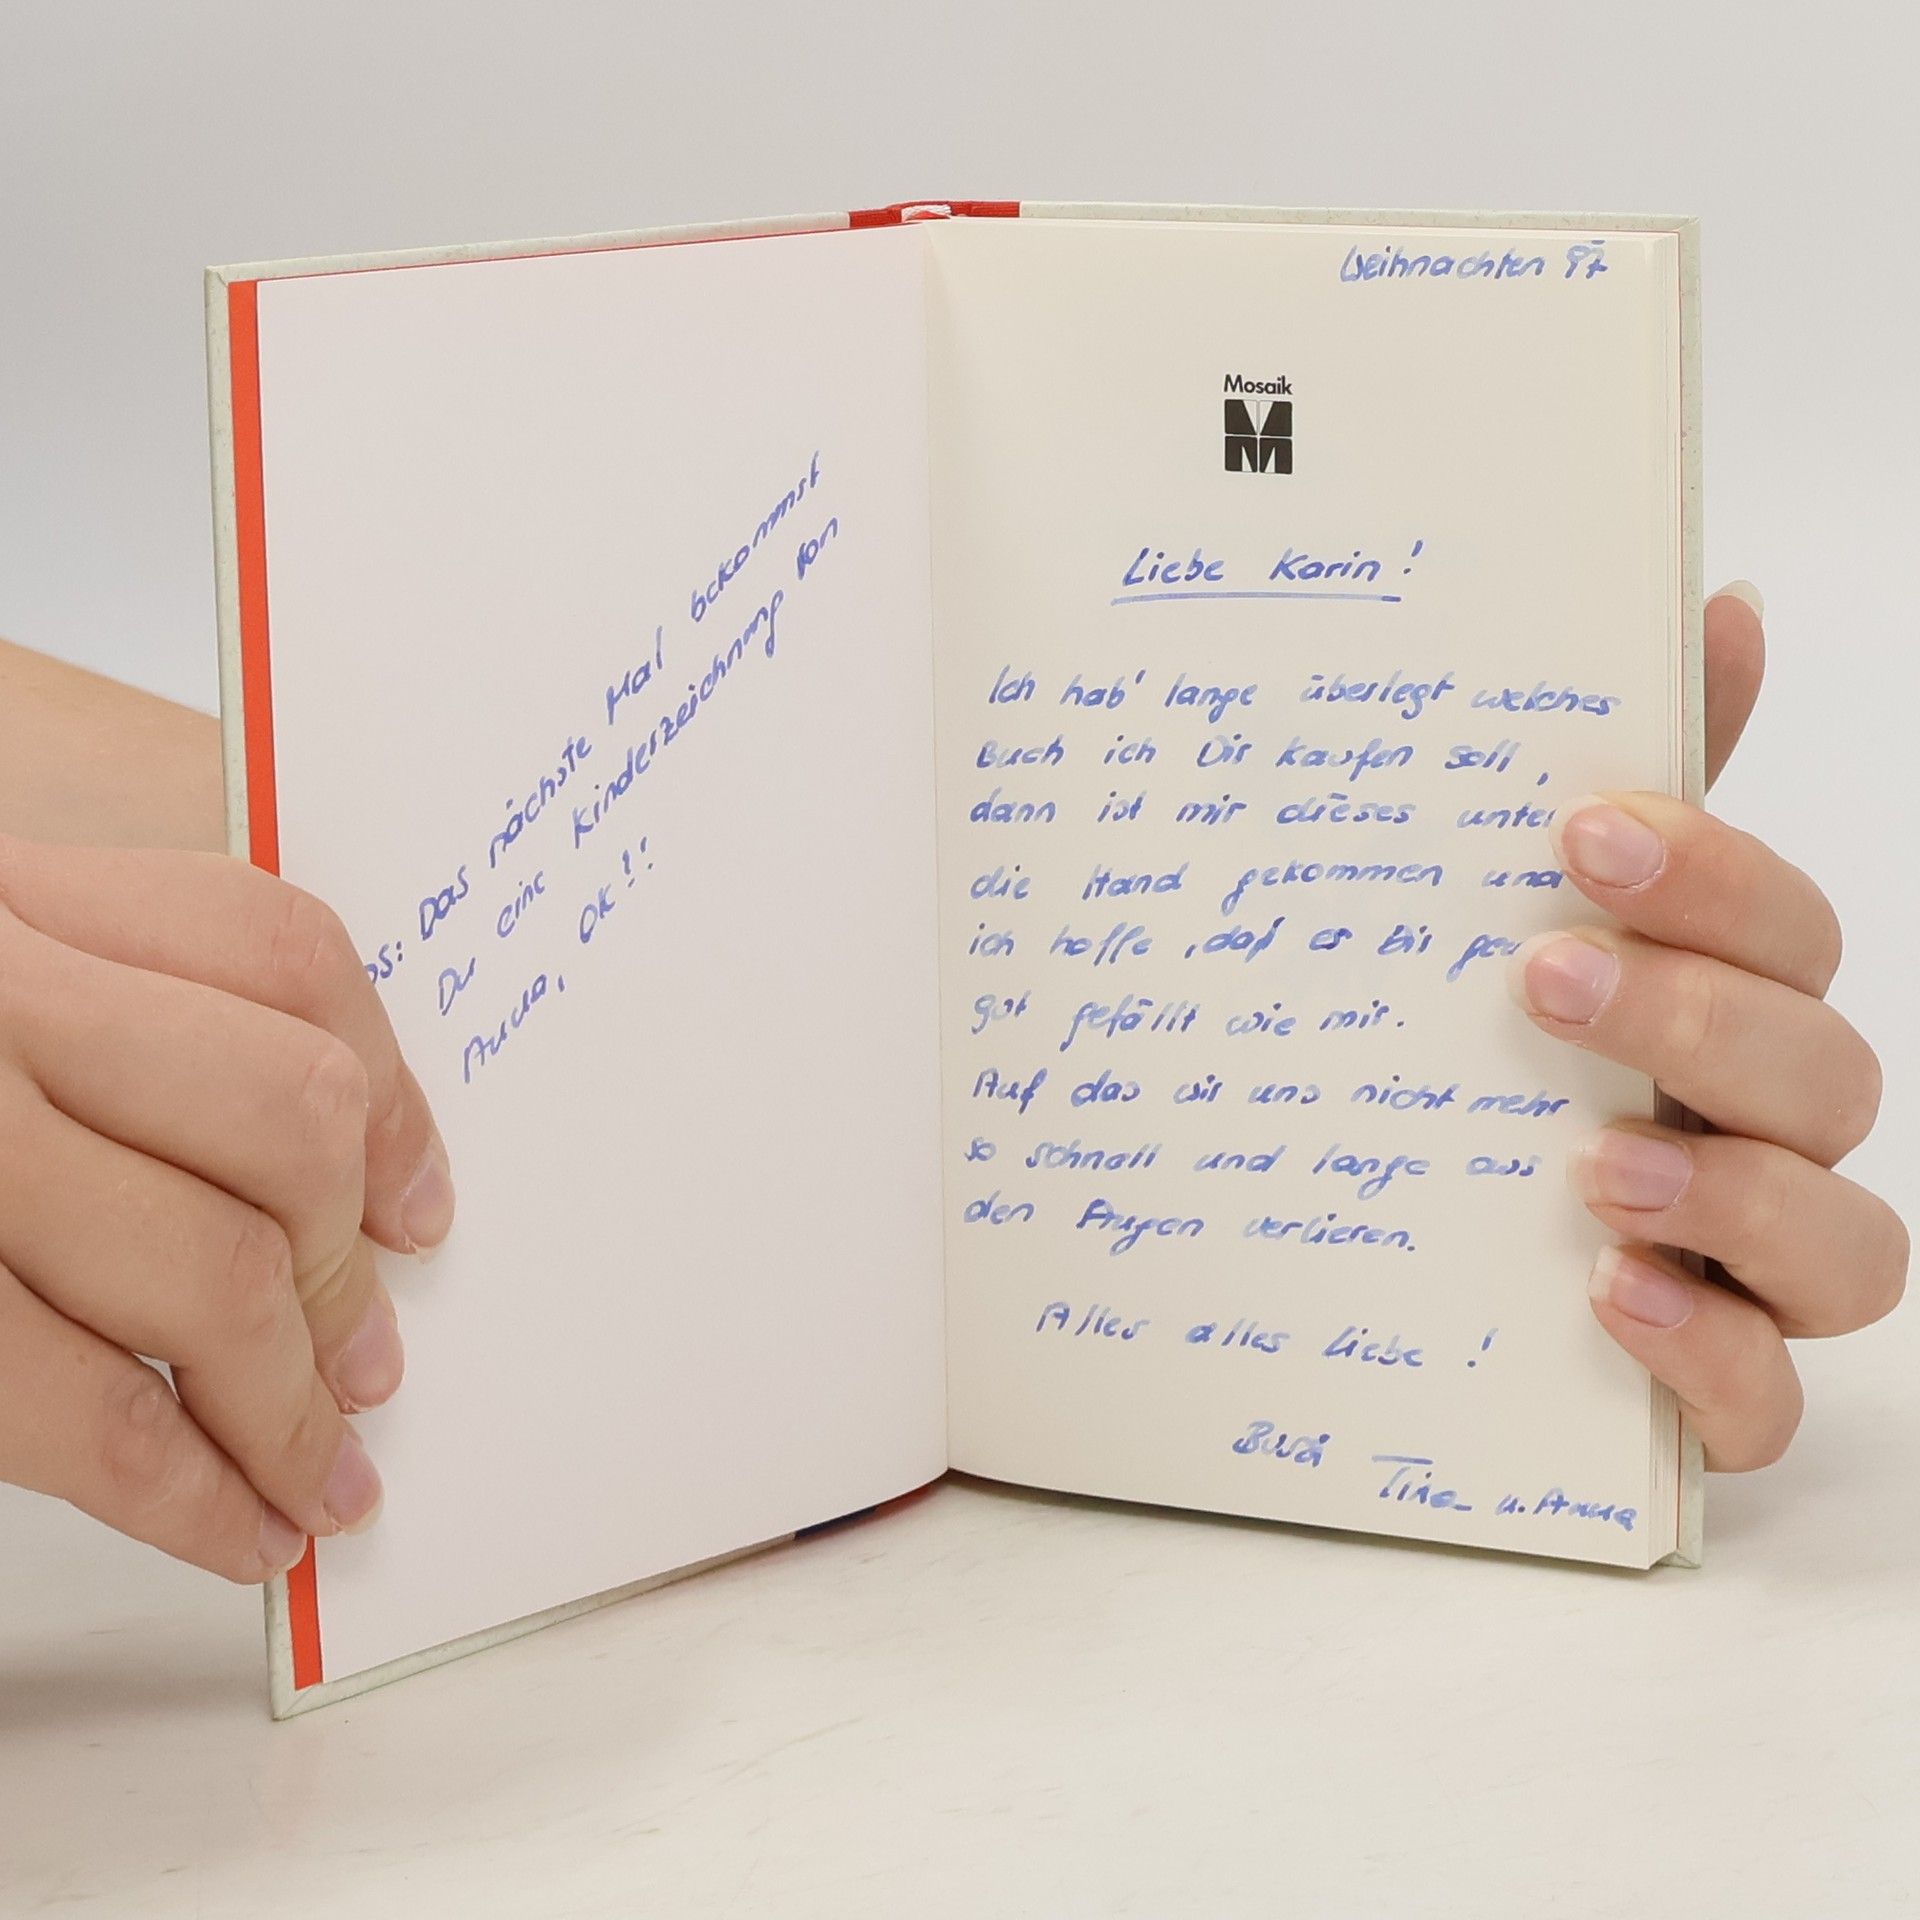 PS: Das nächste Mal bekommst
Du eine Kinderzeichnung von
Anna, OK!!
Weihnachten 97
Mosaik
Liebe Karin!
Ich hab' lange überlegt welches
Buch ich Dir kaufen soll,
dann ist mir dieses unter
die Hand gekommen und
ich hoffe, daß es Dir
gut gefällt wie mir.
Auf das wir uns nicht mehr
so schnell und lange aus
den Augen verlieren.
Alles alles Liebe!
Bussi Tina u. Anna